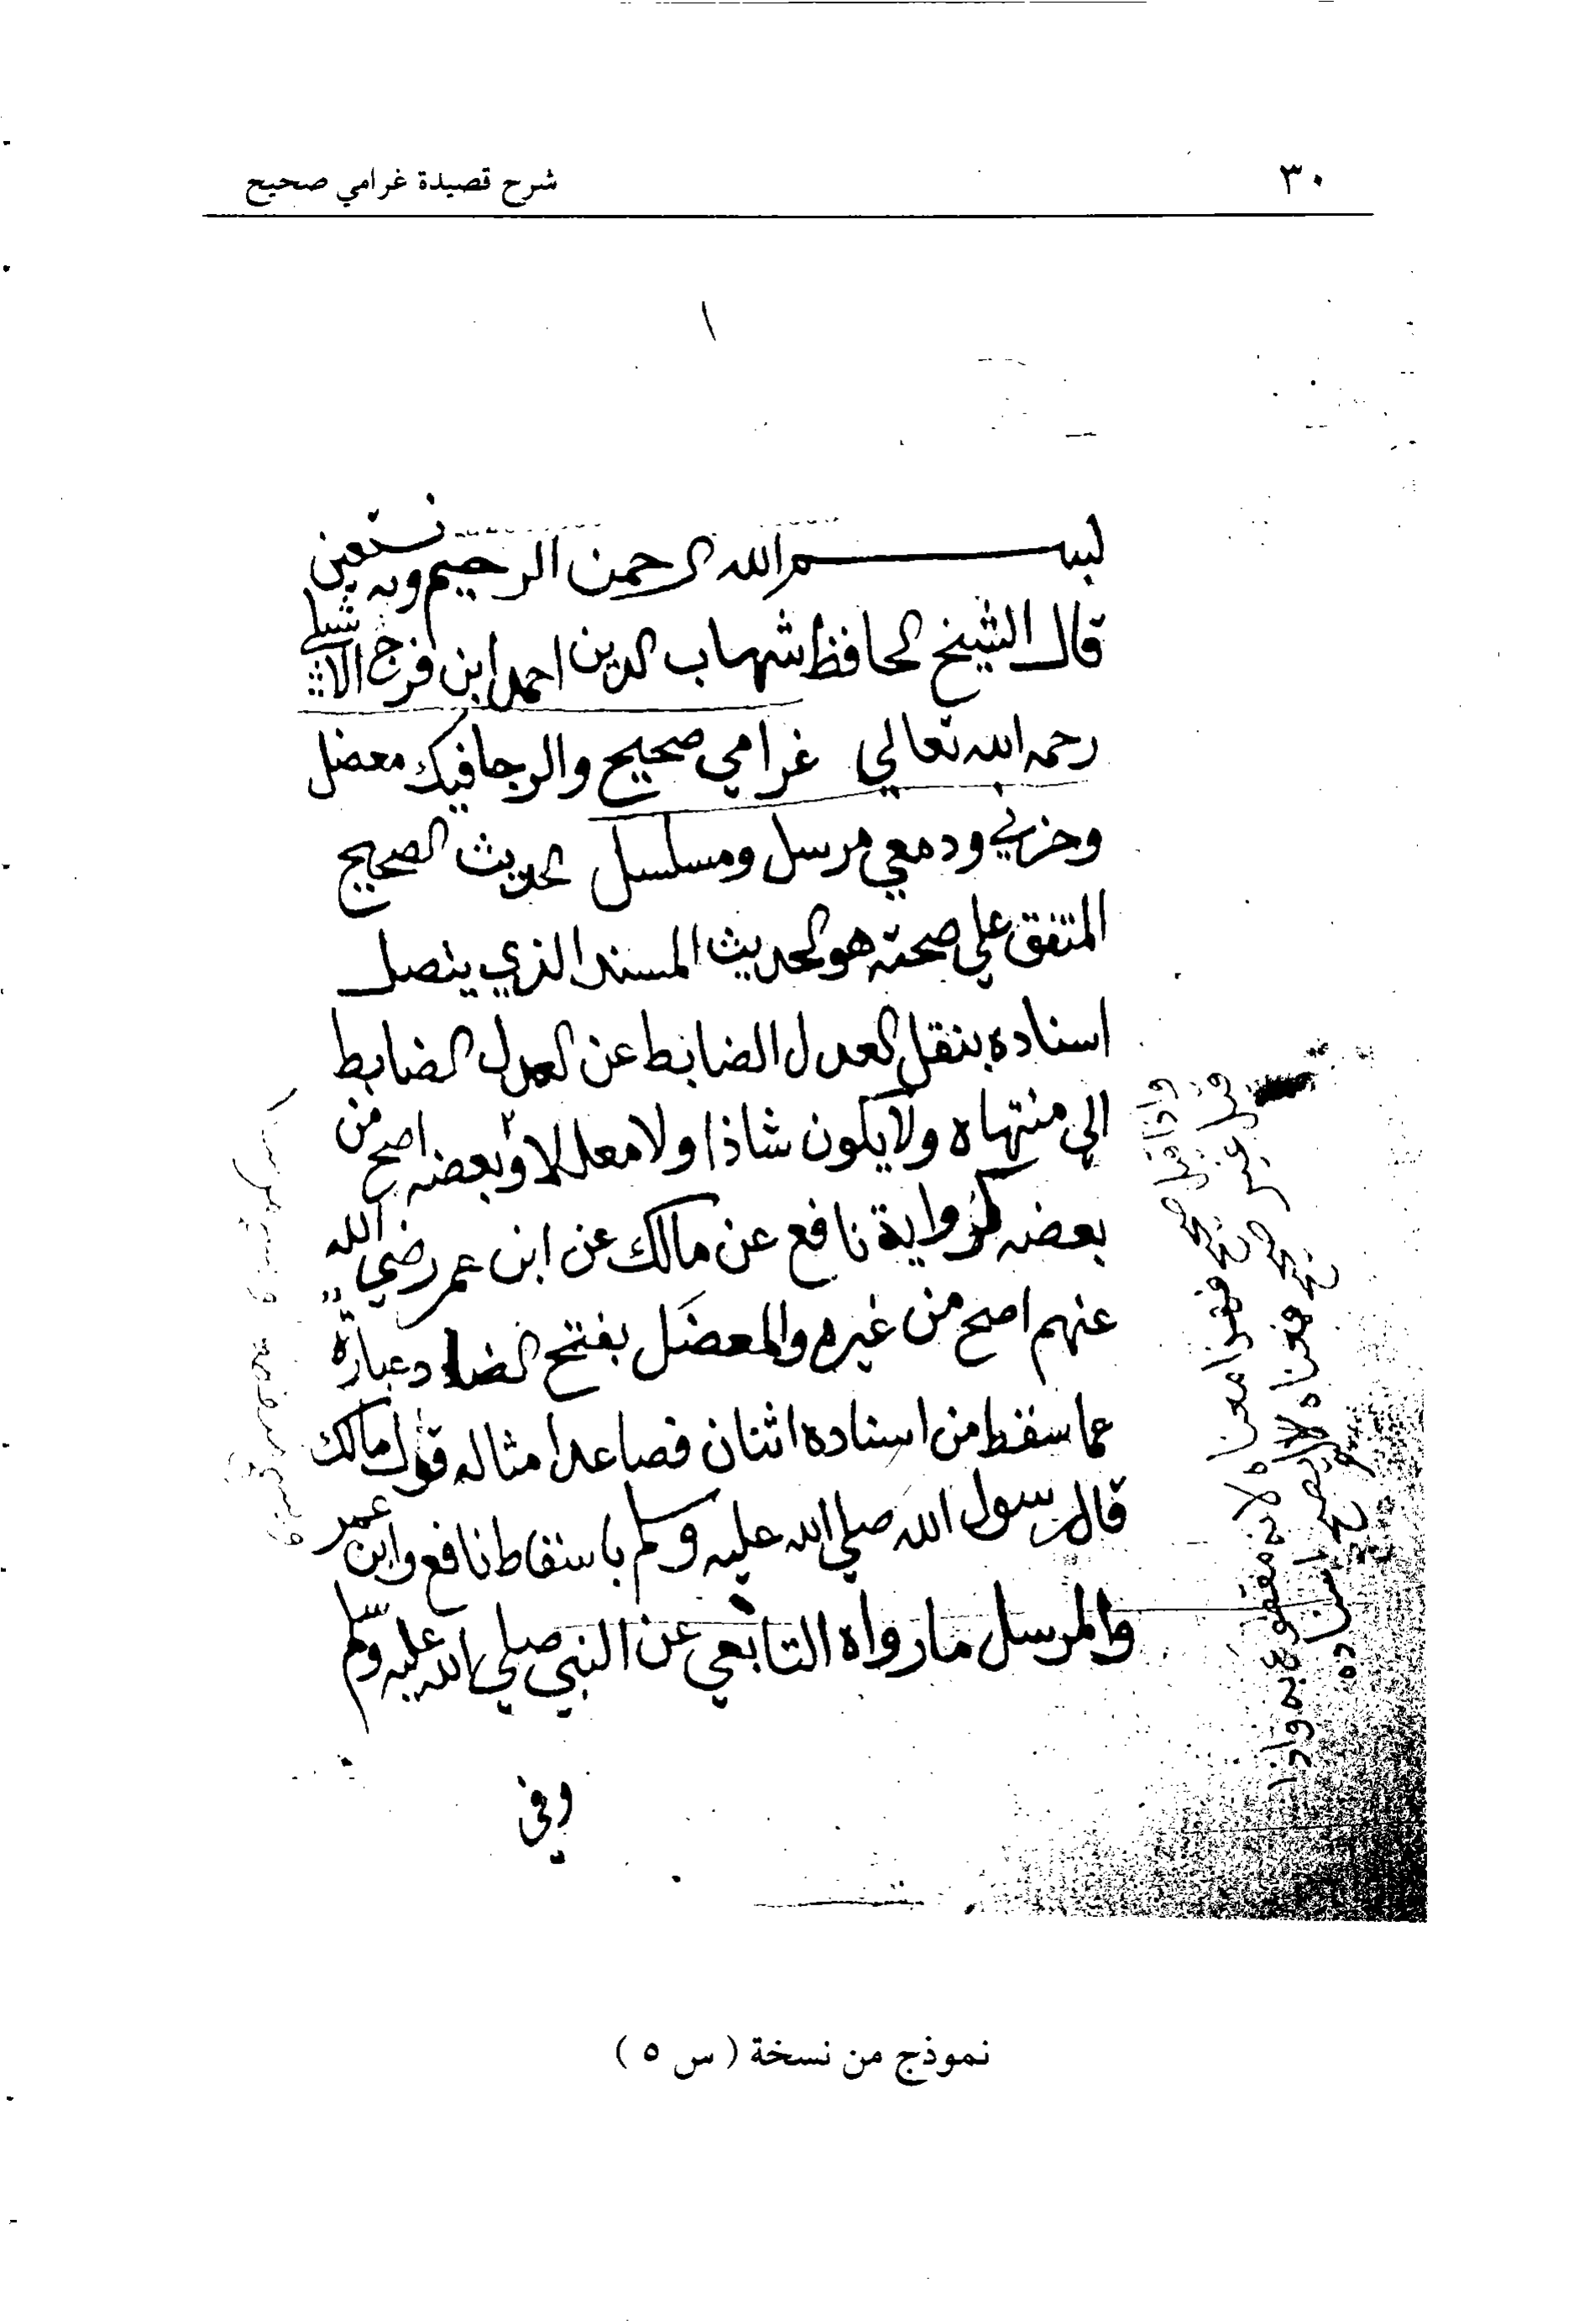 ٣٠
شرح قصيدة غرامي صحيح
١
بسم الله الرحمن الرحيم وبه نستعين
قال الشيخ الحافظ شهاب الدين احمد ابن فرج الاشبيلي
رحمه الله تعالي غرامي صحيح والرجا فيك معضل
وحزني ودمعي مرسل ومسلسل الحديث الصحيح
المتفق علي صحته هو الحديث المسند الذي يتصل
اسناده بنقل العدل الضابط عن العدل الضابط
الي منتهاه ولا يكون شاذا ولا معللا وبعضه اصح من
بعضه كرواية نافع عن مالك عن ابن عمر رضي الله
عنهم اصح من غيره والمعضَل بفتح الضاد عبارة
عما سقط من اسناده اثنان فصاعدا مثاله قول مالك
قال رسول الله صلي الله عليه وسلم باسقاط نافع وابن عمر
والمرسل ما رواه التابعي عن النبي صلي الله عليه وسلم
وفي
واذا قيل صحيح فهذا معناه لانه مقطوع به واذا
قيل غير صحيح فمعناه لا يصح اسناده
نموذج من نسخة ( س ٥ )